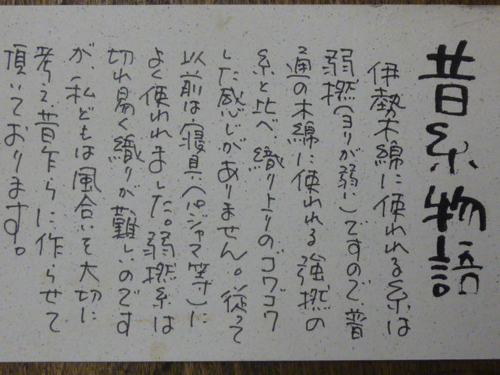 昔糸物語
伊勢木綿に使われる糸は
弱撚(ヨリが弱い)ですので、普
通の木綿に使われる強撚の
糸と比べ、織り上りのゴワゴワ
した感じがありません。従って
以前は寝具(パジャマ等)に
よく使われました。弱撚糸は
切れ易く織りが難しいのです
が、私どもは風合いを大切に
考え昔乍らに作らせて
頂いております。